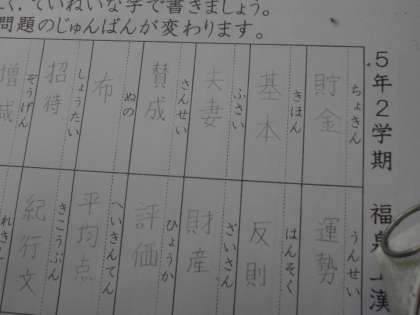 ていねいな字で書きましょう。
問題のじゅんばんが変わります。
5年2学期
ちょきん
貯金
きほん
基本
ふさい
夫妻
さんせい
賛成
ぬの
布
しょうたい
招待
ぞうげん
増減
うんせい
運勢
はんそく
反則
ざいさん
財産
ひょうか
評価
へいきんてん
平均点
きこうぶん
紀行文